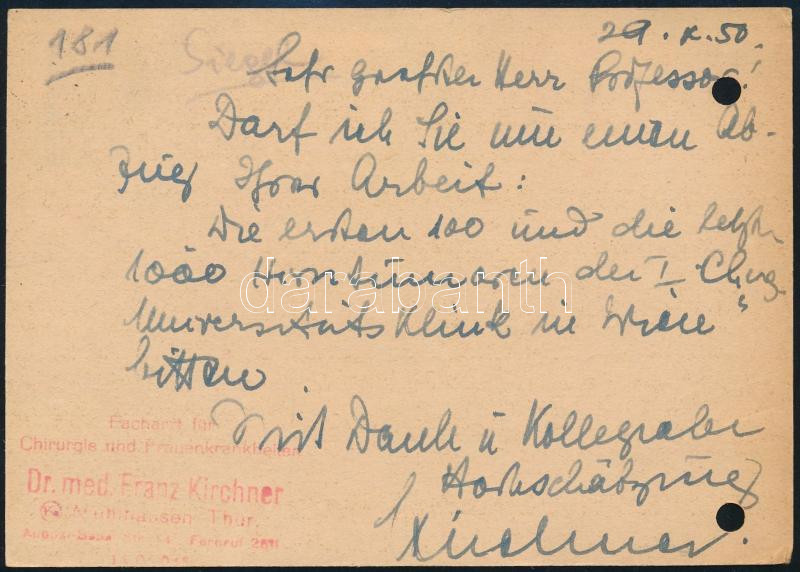 181
29. X. 50.
Siegel
Sehr geehrter Herr Professor!
Darf ich Sie um einen Ab-
zug Ihrer Arbeit:
Die ersten 100 und die letzten
1000 der I. Chirg.
Universitätsklinik in Wien"
bitten
Mit Dank u Kollegialer
Hochschätzung
Kirchner.
Facharzt für
Chirurgie und Frauenkrankheiten
Dr. med. Franz Kirchner
Mühlhausen Thür.
Fernruf
darabanth